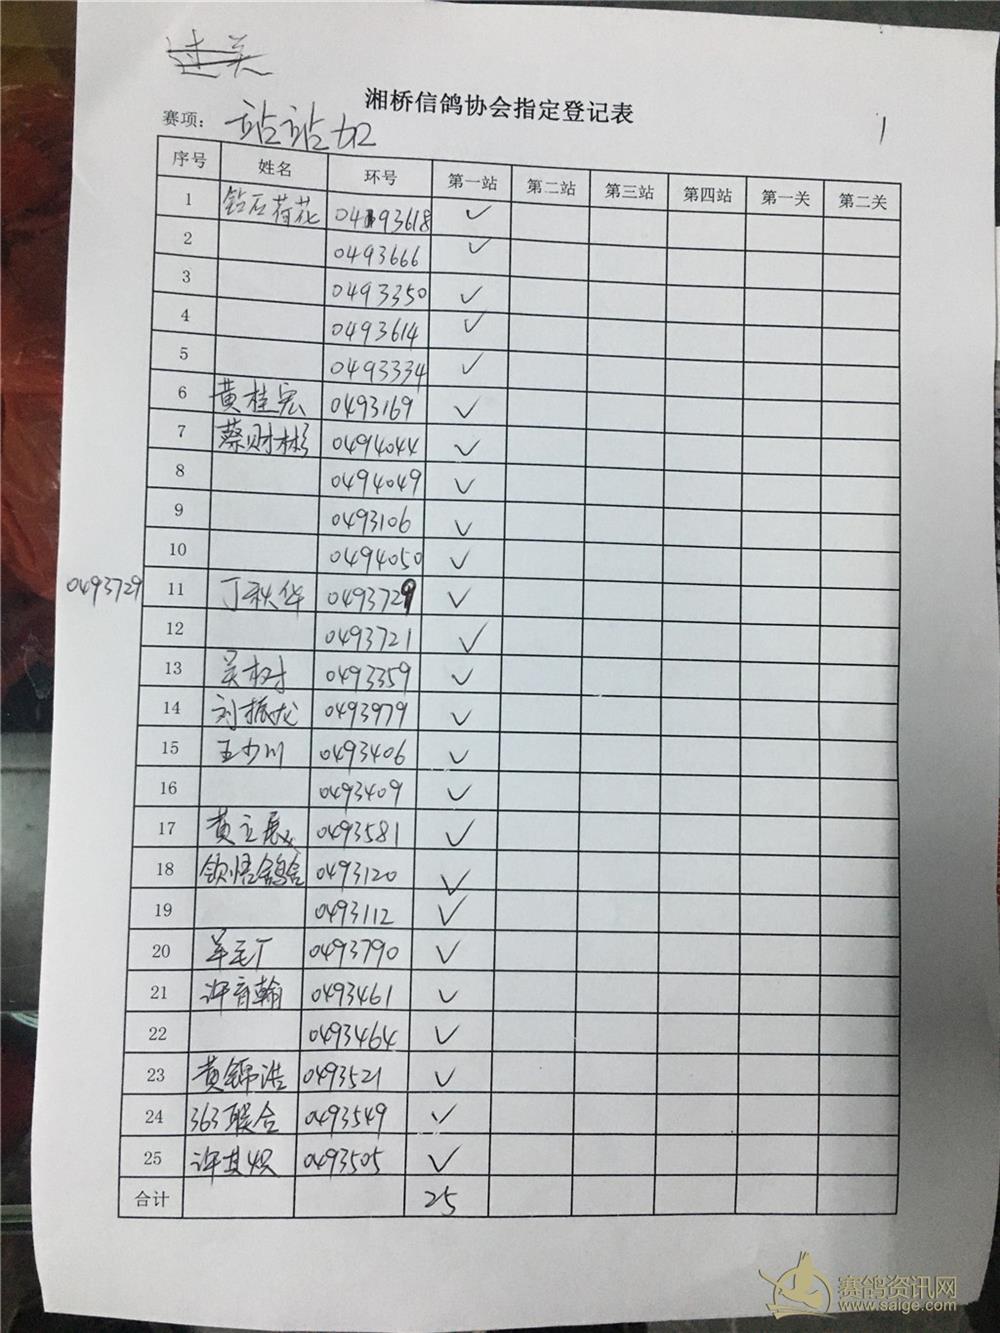 过关
湘桥信鸽协会指定登记表
赛项: 站站加
1
序号 姓名 环号 第一站 第二站 第三站 第四站 第一关 第二关
1 钻石荷花 0493618 ✓
2 0493666 ✓
3 0493350 ✓
4 0493614 ✓
5 0493334 ✓
6 黄桂宏 0493169 ✓
7 蔡财彬 0494044 ✓
8 0494049 ✓
9 0493106 ✓
10 0494050 ✓
0493729 11 丁秋华 0493729 ✓
12 0493721 ✓
13 吴树 0493359 ✓
14 刘振龙 0493979 ✓
15 王少川 0493406 ✓
16 0493409 ✓
17 黄立展 0493581 ✓
18 领悟鸽舍 0493120 ✓
19 0493112 ✓
20 羊毛厂 0493790 ✓
21 许育翰 0493461 ✓
22 0493464 ✓
23 黄锦浩 0493521 ✓
24 363联合 0493549 ✓
25 许其炽 0493505 ✓
合计 25
赛鸽资讯网
www.saige.com